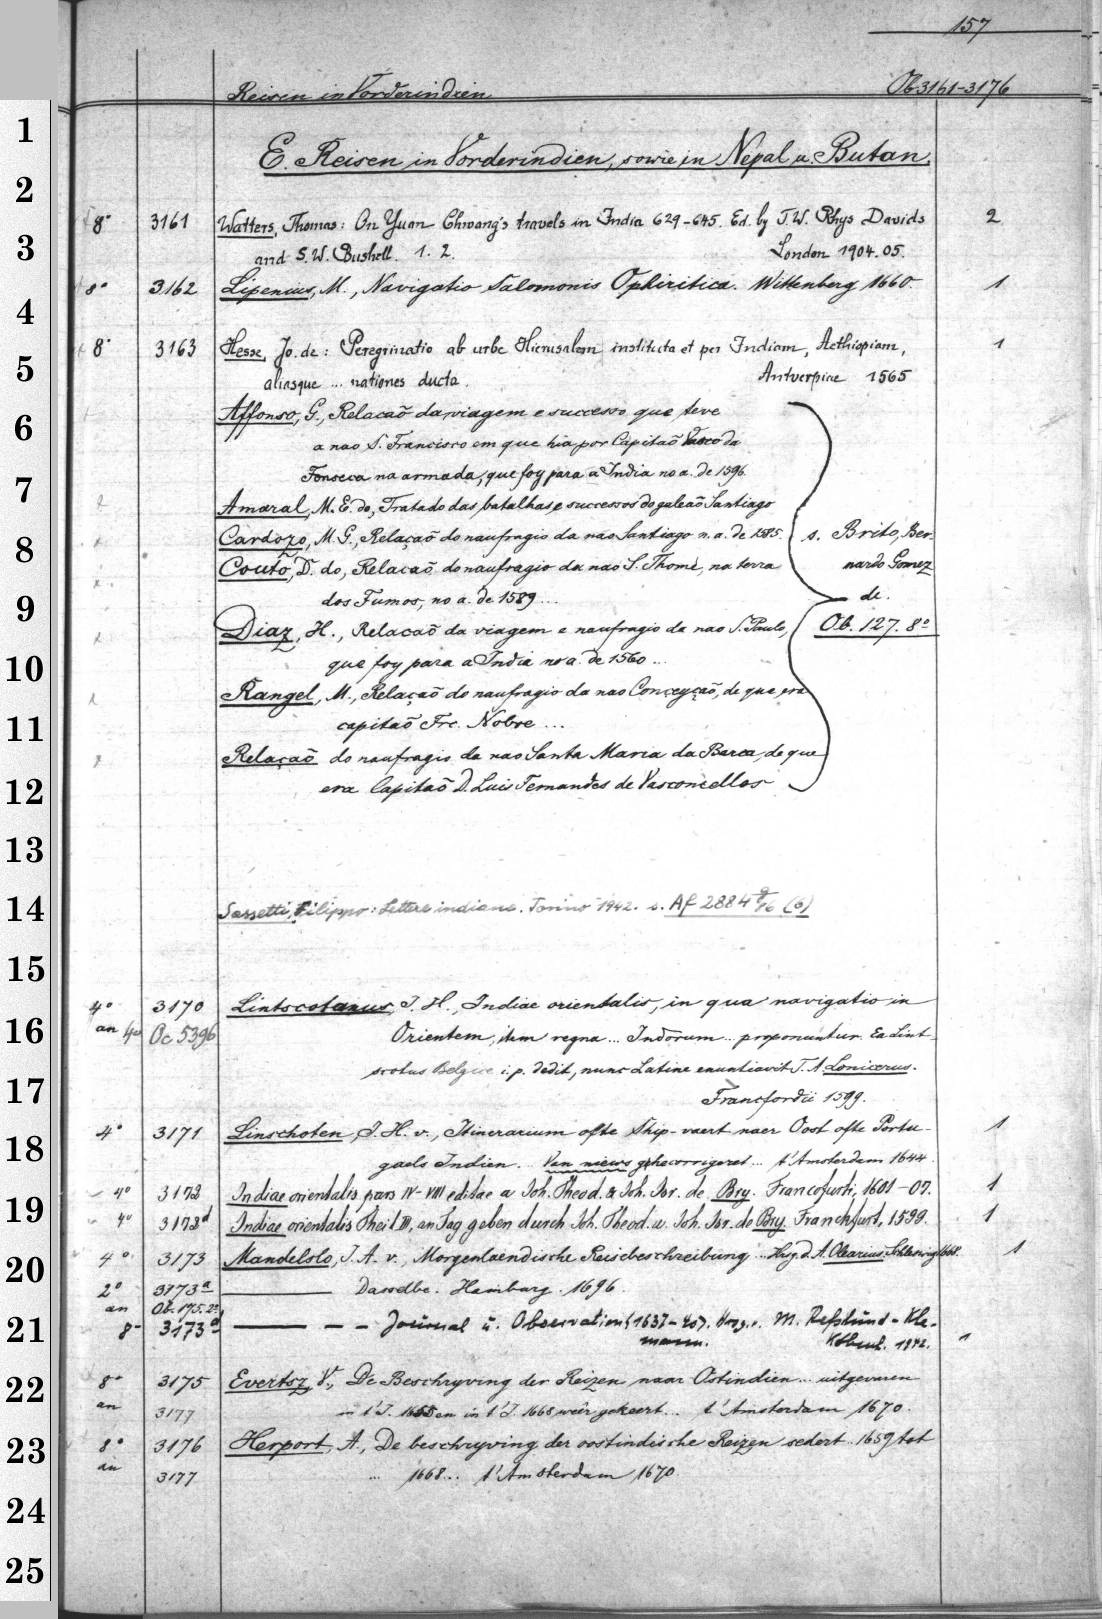 157
Reisen in Vorderindien Ob 3161-3176
1
E. Reisen in Vorderindien, sowie in Nepal u. Butan.
2
8° 3161 Watters, Thomas: On Yuan Chwang's travels in India 629-645. Ed. by T. W. Rhys Davids 2
3
and S. W. Bushell. 1. 2. London 1904. 05.
8° 3162 Lipenius, M., Navigatio Salomonis Ophiritica. Wittenberg 1660. 1
4
8° 3163 Hesse, Jo. de: Peregrinatio ab urbe Hierusalem instituta et per Indiam, Aethiopiam, 1
5
aliasque ... nationes ducta. Antverpiae 1565
6
Affonso, G., Relacaõ da viagem e successo que teve
a nao S. Francisco em que hia por Capitaõ Vasco da
Fonseca na armada, que foy para a India no a. de 1596.
7
Amaral, M. E. do, Tratado das batalhas e successos do galeaõ Santiago
8
Cardozo, M. G., Relaçaõ do naufragio da nao Santiago n. a. de 1585. s. Brito, Ber-
Couto, D. do, Relacaõ do naufragio da nao S. Thomè, na terra nardo Gomez
9
dos Fumos, no a. de 1589 ... de.
Diaz, H., Relacaõ da viagem e naufragio da nao S. Paulo, Ob. 127. 8°
10
que foy para a India no a. de 1560 ...
Rangel, M., Relaçaõ do naufragio da nao Conceyçaõ, de que era
11
capitaõ Frc. Nobre ...
Relaçaõ do naufragio da nao Santa Maria da Barca, de que
12
era Capitaõ D. Luis Fernandes de Vasconcellos
13
14
Sassetti, Filippo: Lettere indiane. Torino 1942. s. Af 2884 9/16 (6)
15
4° 3170 Lintscotanus, J. H., Indiae orientalis, in qua navigatio in
16
an 4° Oc 5396 Orientem, item regna ... Indorum ... proponuntur. Ea Lint-
scotus Belgice i. p. dedit, nunc Latine enuntiavit T. A. Lonicerus.
17
Francfordii 1599.
18
4° 3171 Linschoten, J. H. v., Itinerarium ofte Ship-vaert naer Oost ofte Portu- 1
gaels Indien. Van nieus ghecorrigeret ... t'Amsterdam 1644.
4° 3172 Indiae orientalis pars IV-VIII editae a Joh. Theod. & Joh. Isr. de Bry. Francofurti, 1601-07. 1
19
4° 3172d Indiae orientalis Theil III, an Tag geben durch Joh. Theod. u. Joh. Isr. de Bry. Franckfurt, 1599. 1
20
4° 3173 Mandelslo, J. A. v., Morgenlaendische Reisebeschreibung ... Hrsg. d. A. Olearius. Schleswig 1668. 1
2° 3173a Dasselbe. Hamburg. 1696.
an Ob. 175. 2°
21
8° 3173d - - Journal u. Observation (1637-40). Hrsg. v. M. Refslund-Kle-
mann. Københ. 1942. 1
22
8° 3175 Evertsz, V., De Beschryving der Reizen naar Ostindien ... uitgevaren
an 3177 in 't J. 1655 en in 't J. 1668 weêr gekeert ... t'Amsterdam 1670.
23
8° 3176 Herport, A., De beschryving der oostindische Reizen sedert .. 1659 tot
an 3177 ... 1668 ... t'Amsterdam 1670
24
25